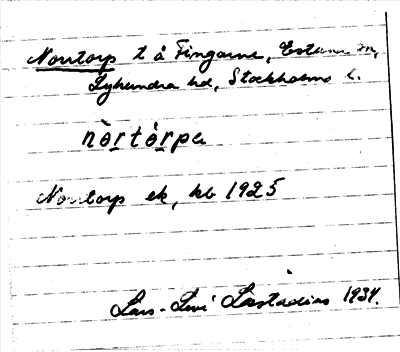 Norrtorp t å Fingarne, Estuna sn,
Lyhundra hd, Stockholms l.
nòrtòrpa
Norrtorp ek, kb 1925
Lars-Levi Læstadius 1934.